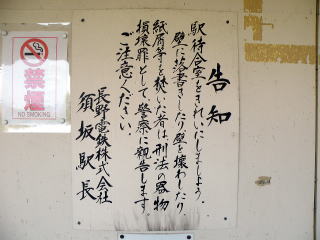 告知
駅待合室をきれいにしましよう。
壁に落書きしたり壁を壊わしたり
紙屑等を焚いた者は刑法の器物
損壊罪として警察に報告します。
ご注意ください。
長野電鉄株式会社
須坂駅長
禁煙
NO SMOKING